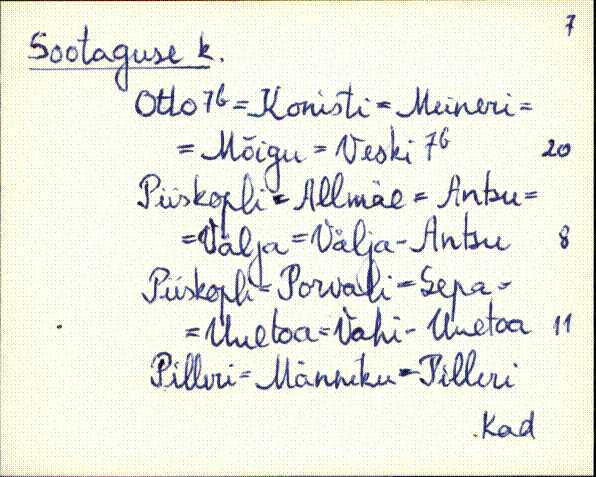 7
Sootaguse k.
Otto 7b = Konisti = Meineri =
= Mõigu = Veski 7b 20
Piiskopli = Allmäe = Antsu =
= Välja = Välja - Antsu 8
Piiskopli = Porvali = Sepa -
= Uuetoa = Vahi - Uuetoa 11
Pilleri = Männiku = Pilleri
.Kad